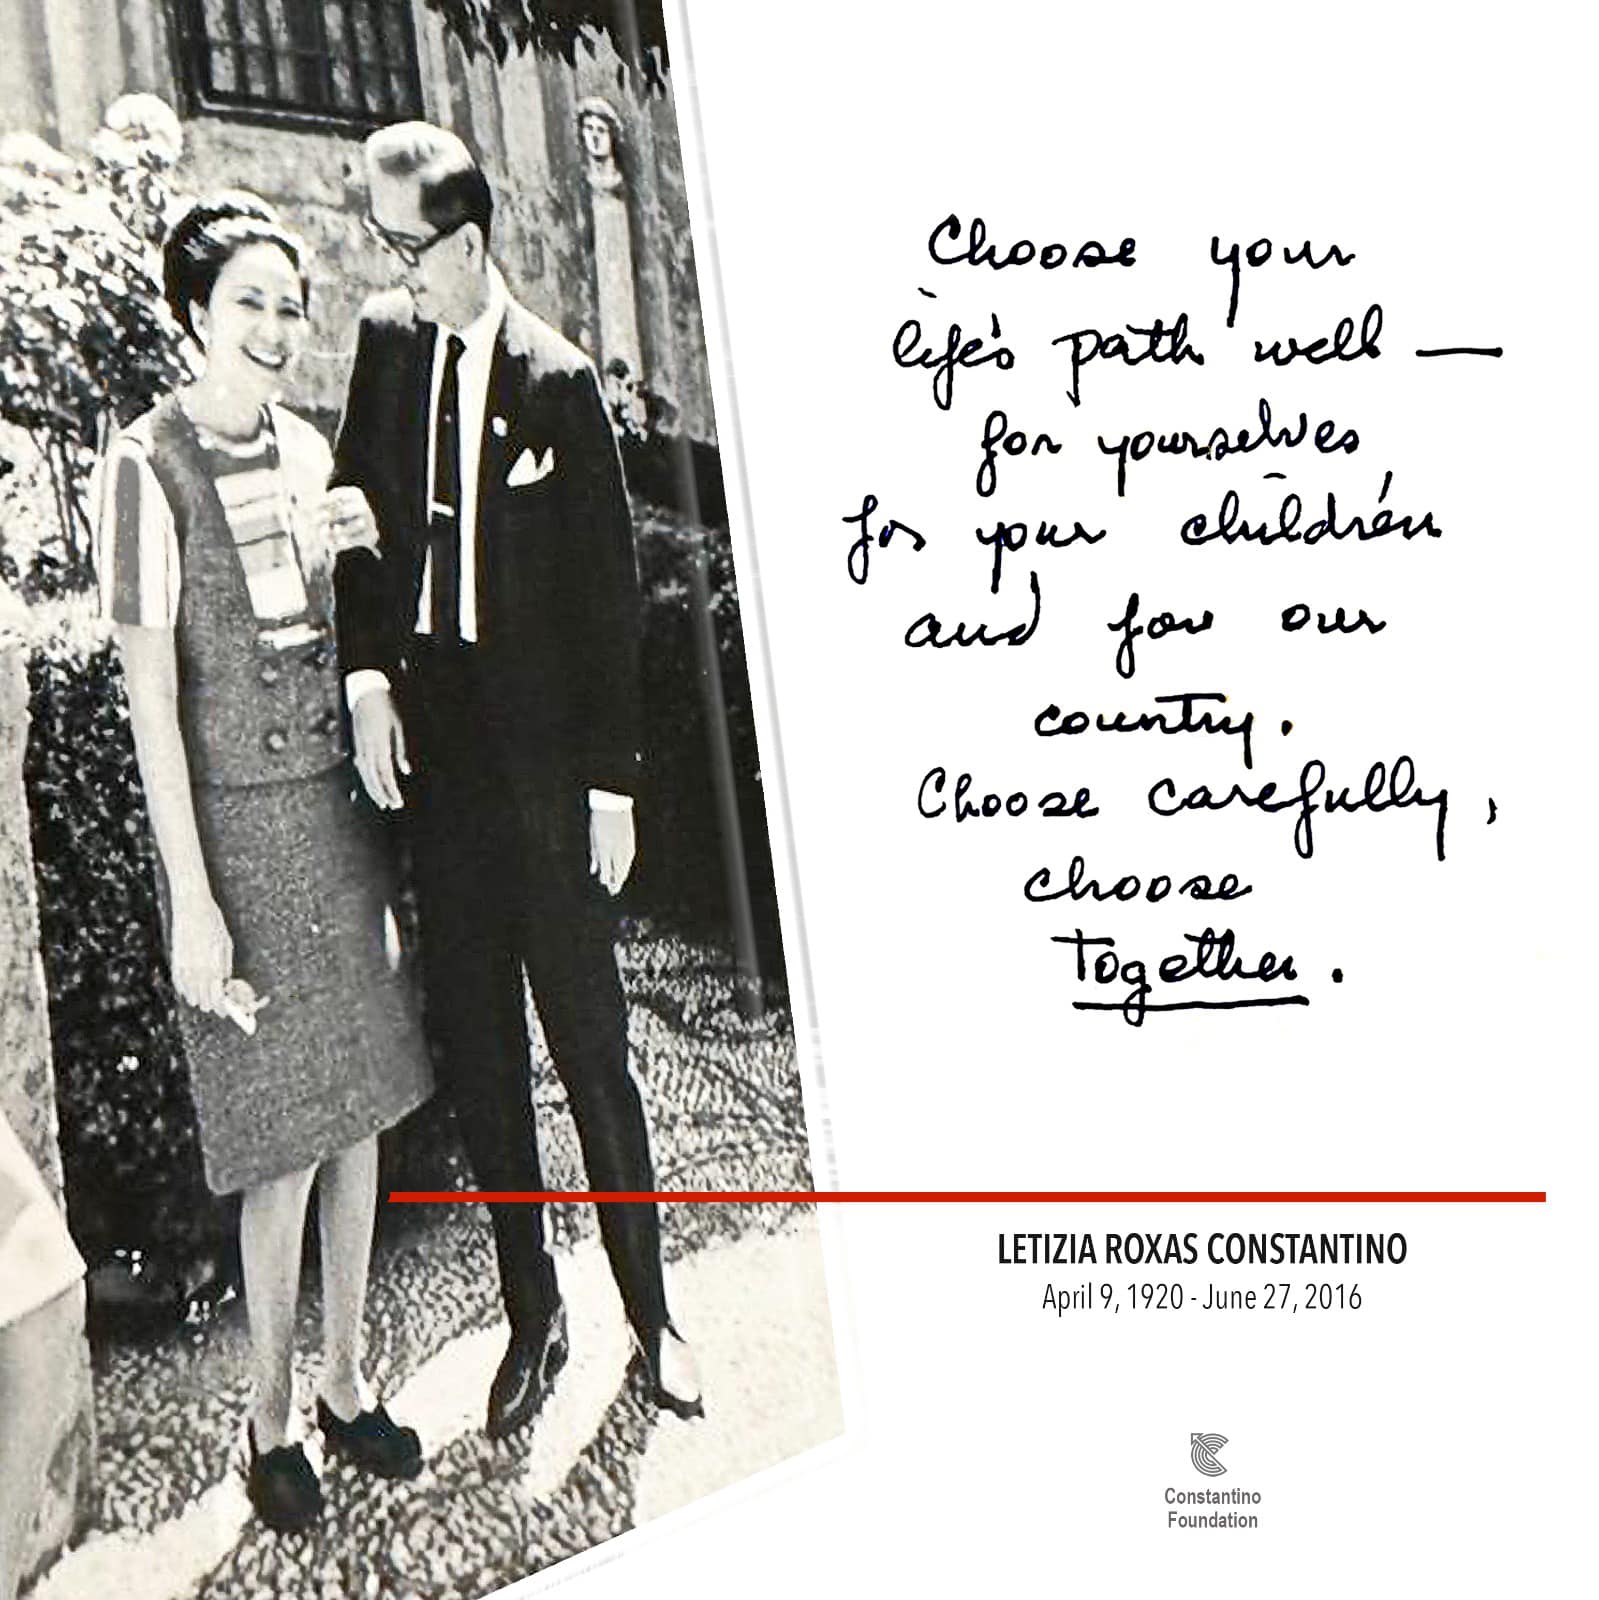 Choose your
life's path well —
for yourselves
for your children
and for our
country.
Choose carefully,
choose
together.
LETIZIA ROXAS CONSTANTINO
April 9, 1920 - June 27, 2016
Constantino
Foundation